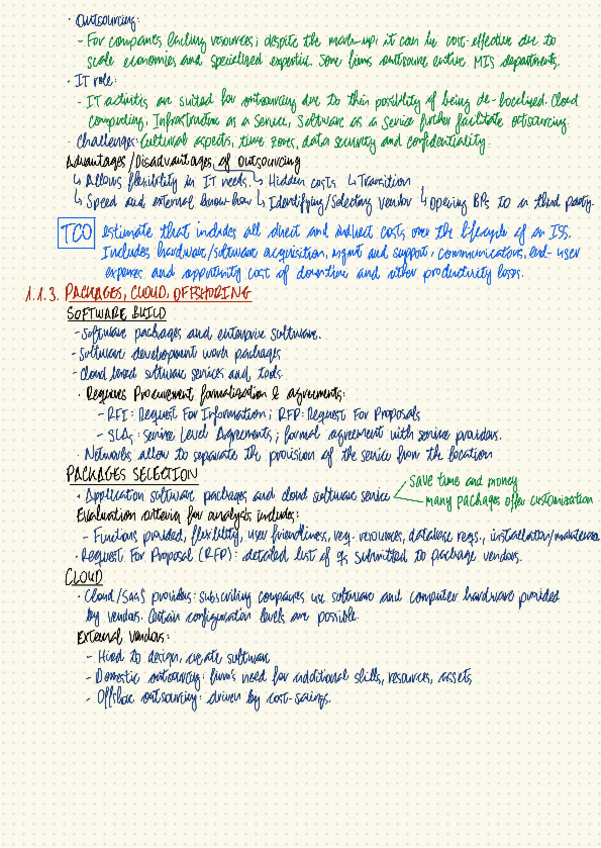 · Outsourcing:
- For companies lacking resources; despite the mark-up, it can be cost-effective due to
scale economies and specialized expertise. Some firms outsource entire MIS departments.
· IT role:
- IT activities are suited for outsourcing due to their possibility of being de-localised. Cloud
Computing, Infrastructure as a Service, Software as a Service further facilitate outsourcing.
· Challenges: Cultural aspects, time zones, data security and confidentiality.
Advantages/Disadvantages of Outsourcing
↳ Allows flexibility in IT needs. ↳ Hidden costs ↳ Transition
↳ Speed and external know-how ↳ Identifying/Selecting vendor ↳ Opening BPs to a third party.
TCO estimate that includes all direct and indirect costs over the lifecycle of an ISS.
Includes hardware/software acquisition, mgmt and support, communications, end-user
expenses and opportunity cost of downtime and other productivity losses.
1.1.3. PACKAGES, CLOUD, OFFSHORING
SOFTWARE BUILD
- Software packages and enterprise software.
- Software development work packages
- Cloud based software services and tools.
· Requires Procurement formalization & agreements:
- RFI: Request For Information; RFP: Request For Proposals
- SLAs: Service Level Agreements; formal agreement with service providers.
· Networks allow to separate the provision of the service from the location
PACKAGES SELECTION
· Application software packages and cloud software service
save time and money
many packages offer customization
Evaluation criteria for analysis includes:
- Functions provided, flexibility, user friendliness, req. resources, database reqs., installation/maintenance
· Request For Proposal (RFP): detailed list of qs submitted to package vendors.
CLOUD
· Cloud/SaaS providers: subscribing companies use software and computer hardware provided
by vendors. Certain configuration levels are possible.
External Vendors:
- Hired to design, create software
- Domestic outsourcing: firm's need for additional skills, resources, assets
- Offshore outsourcing: driven by cost-savings.